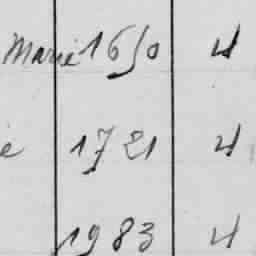 Marie 1650 4
e 1721 4
1983 4